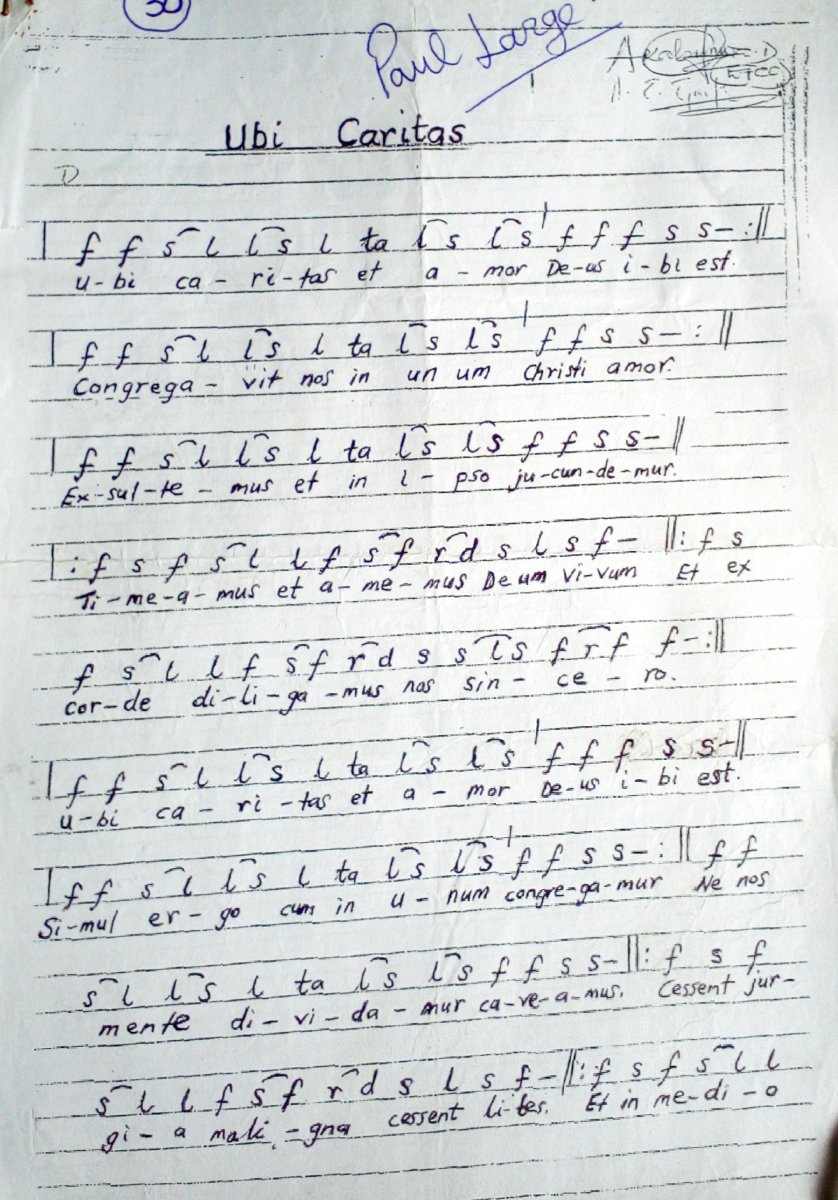 30
Paul Large
(ETCC)
Ubi Caritas
D
f f s l l s l ta l s l s f f f s s- :||
u-bi ca - ri-tas et a - mor De-us i-bi est.
f f s l l s l ta l s l s f f s s- :||
Congrega - vit nos in un um Christi amor.
f f s l l s l ta l s l s f f s s- ||
Ex-sul-te - mus et in i - pso ju-cun-de-mur.
|: f s f s l l f s f r d s l s f- ||: f s
Ti-me-a-mus et a-me-mus Deum vi-vum Et ex
f s l l f s f r d s s l s f r f f- :||
cor-de di-li-ga-mus nos sin - ce - ro.
f f s l l s l ta l s l s f f f s s- ||
u-bi ca - ri-tas et a - mor De-us i-bi est.
f f s l l s l ta l s l s f f s s- :|| f f
Si-mul er - go cum in u - num congre-ga-mur Ne nos
s l l s l ta l s l s f f s s- ||: f s f
mente di - vi - da - mur ca-ve-a-mus. Cessent jur-
s l l f s f r d s l s f- ||: f s f s l l
gi - a mali - gna cessent li-tes. Et in me-di-o